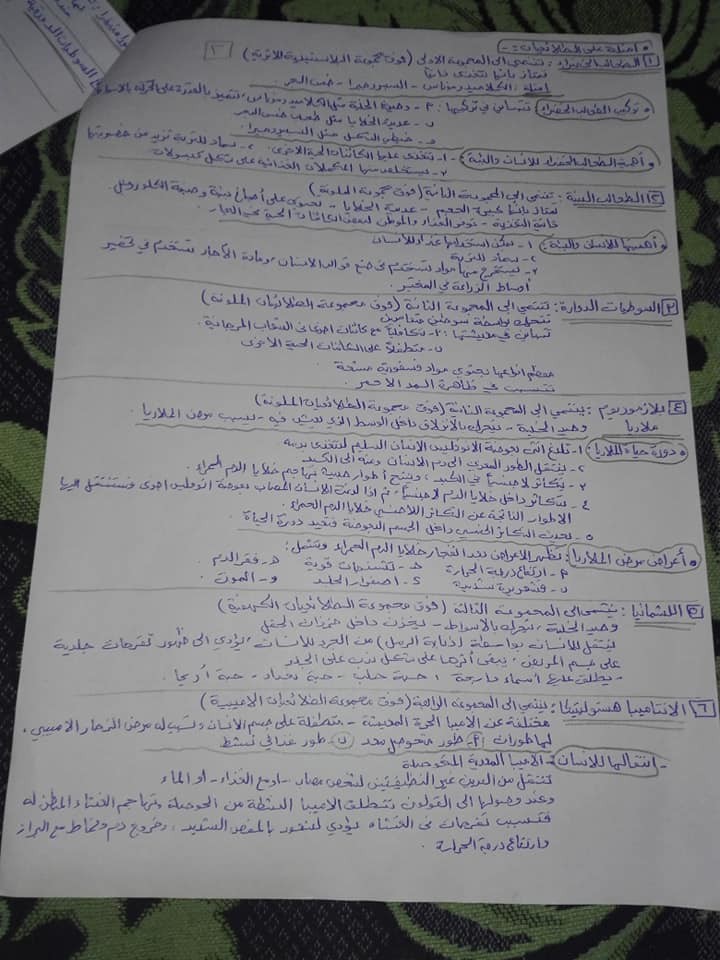 • أمثلة على الطلائعيات :-
١ الطحالب الخضراء : تنتمي الى المجموعة الاولى (فوق مجموعة البلاستيدية للاولية)
تمتاز بأنها تتغذى ذاتياً
أمثلة : الكلاميدوموناس - السبيروجيرا - خس البحر
• تركيب الطحالب الخضراء تتباين في تركيبها : ٢- وحيدة الخلية مثل الكلاميدوموناس، تتميز بالقدرة على الحركة بالاسواط
ب- عديدة الخلايا مثل طحلب خس البحر
ج- خيطي الشكل مثل السبيروجيرا
• أهمية الطحالب الخضراء للانسان والبيئة : ١- تتغذى عليها الكائنات الحية الاخرى. ٢- سماد للتربة تزيد من خصوبتها
٣- يستخلص منها المكملات الغذائية على شكل كبسولات
٢ الطحالب البنية : تنتمي الى المجموعة الثانية (فوق مجموعة الملونة)
تمتاز بأنها كبيرة الحجم - عديدة الخلايا - تحتوي على أصباغ بنية وصبغة الكلوروفيل.
ذاتية التغذية - توفر الغذاء والموطن لبعض الكائنات الحية في البحار
• أهميتها للانسان والبيئة : ١- يمكن استخدامها غذاء للانسان
٢- سماد للتربة
٣- يستخرج منها مواد تستخدم في صنع قوالب الاسنان، ومادة الأجار تستخدم في تحضير
أوساط الزراعة في المختبر.
٣ السوطيات الدوارة : تنتمي الى المجموعة الثانية (فوق مجموعة الطلائعيات الملونة)
تتحرك بواسطة سوطين متعامدين
تتباين في معيشتها : ٢- تكافلياً مع كائنات اخرى في الشعاب المرجانية.
ب- متطفلاً على الكائنات الحية الاخرى
معظم انواعها تحتوي مواد فسفورية مشعة
تتسبب في ظاهرة المد الاحمر.
٤ بلازموديوم ملاريا : ينتمي الى المجموعة الثانية (فوق مجموعة الطلائعيات الملونة)
وحيد الخلية - يتحرك بالانزلاق داخل الوسط الذي يعيش فيه - يسبب مرض الملاريا
• دورة حياة الملاريا : ١- تلدغ انثى بعوضة الانوفيليس الانسان السليم لتتغذى بدمه
٢- ينتقل الطور المعدي الى دم الانسان ومنه الى الكبد.
٣- يتكاثر لاجنسياً في الكبد، وينتج أطوار جنسية تهاجم خلايا الدم الحمراء.
٤- تتكاثر داخل خلايا الدم لاجنسياً، ثم اذا لدغت الانسان المصاب بعوضة انوفيليس اخرى فستنتقل اليها
الاطوار الناتجة عن التكاثر اللاجنسي خلايا الدم الحمراء.
٥- يحدث التكاثر الجنسي داخل الجسم البعوضة فتعيد دورة الحياة.
• أعراض مرض الملاريا : تظهر الاعراض بعد انفجار خلايا الدم الحمراء وتشمل :
٢- ارتفاع درجة الحرارة هـ- تشنجات قوية هـ- فقر الدم
ب- قشعريرة شديدة د- اصفرار الجلد و- الموت
٥ اللشمانيا : ينتمي الى المجموعة الثالثة (فوق مجموعة الطلائعيات الكهفية)
وحيد الخلية، يتحرك بالاسواط - يختزن داخل خزانات الحقل
ينتقل للانسان بواسطة (ذبابة الرمل) من الجرذ للانسان، ويؤدي الى ظهور تقرحات جلدية
على جسم المريض، يبقى أثرها على شكل ندب على الجلد
- يطلق عليه أسماء دارجة : حبة حلب - حبة بغداد - حبة أريحا.
٦ الانتاميبا هستوليتيكا : ينتمي الى المجموعة الرابعة (فوق مجموعة الطلائعيات الاميبية)
مختلفة عن الاميبا الحرة المعيشة - متطفلة على جسم الانسان وتسبب له مرض الزحار الاميبي،
لها طوران ٢ طور متحوصل معد ب طور غذائي نشط
- انتقالها للانسان - الاميبا المعدية المتحوصلة
تنتقل من اليدين غير النظيفتين لشخص مصاب - او مع الغذاء - او الماء
وعند وصولها الى القولون تنطلق الاميبا النشطة من الحوصلة وتهاجم الغشاء المبطن له
فتسبب تقرحات في الغشاء يؤدي للشعور بالمغص الشديد، وخروج دم ومخاط مع البراز
وارتفاع درجة الحرارة.